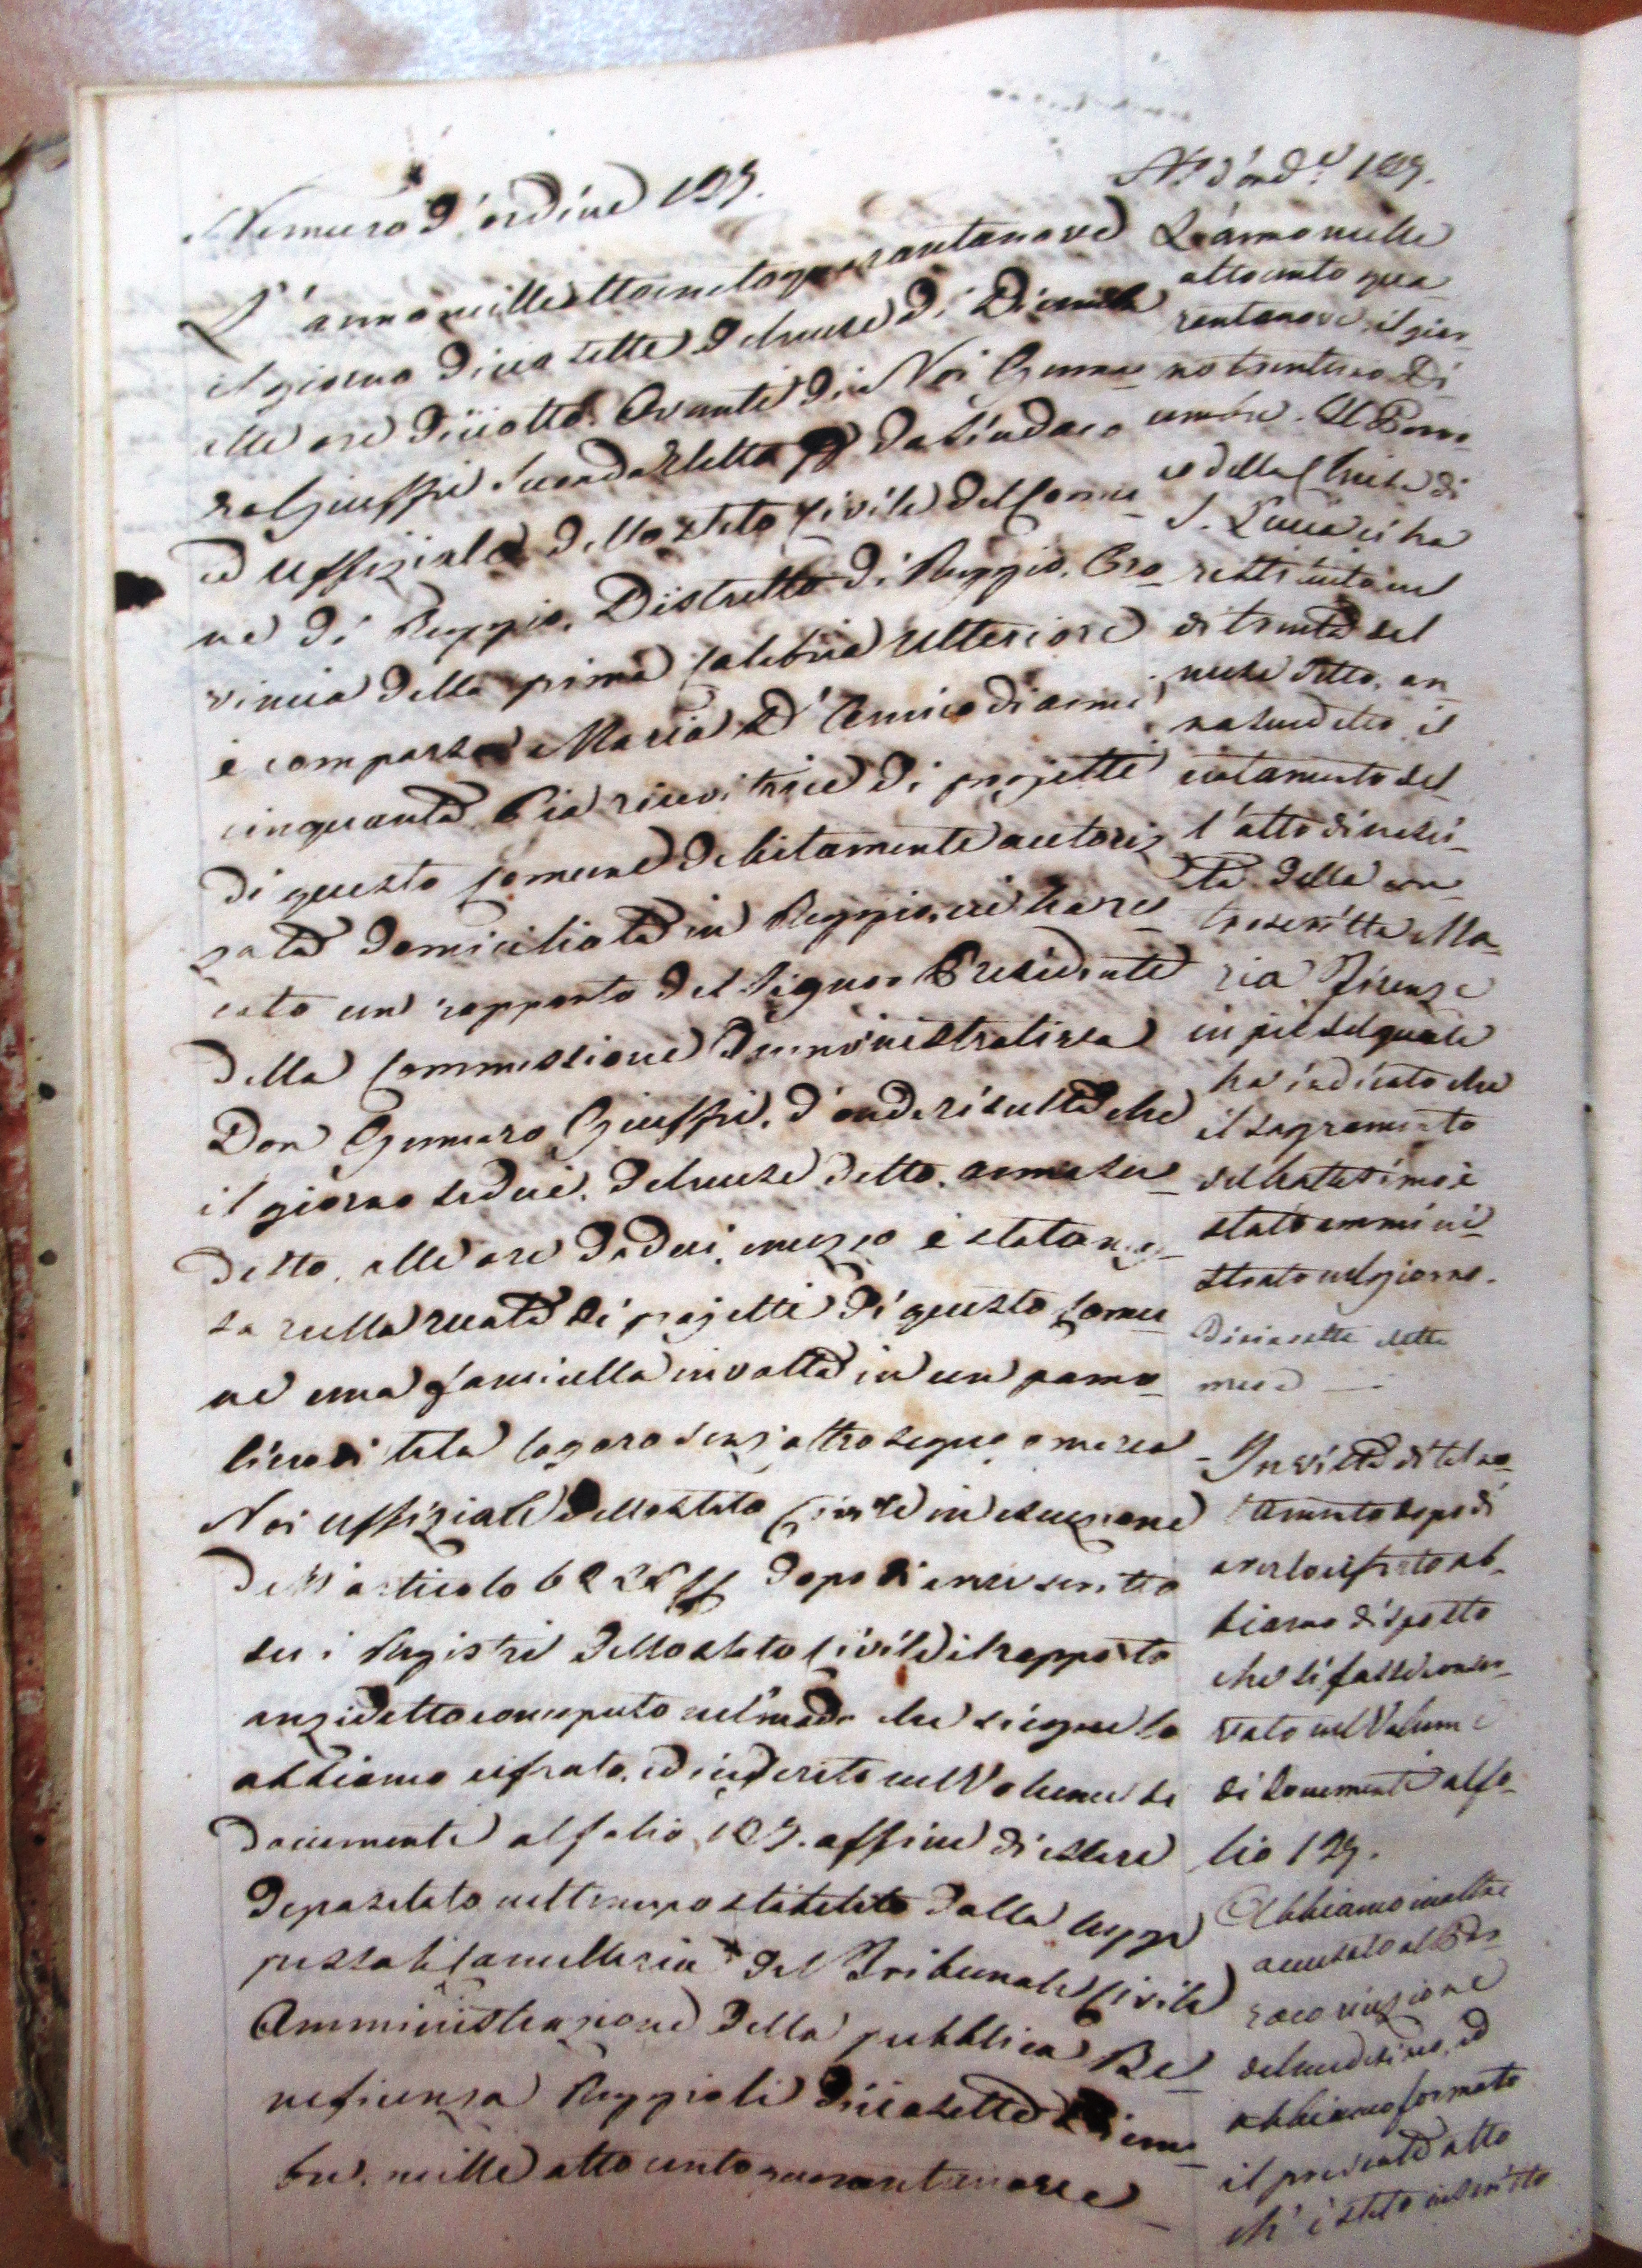 Numero d'ordine 129.
L'anno milleottocentoquarantanove
il giorno diciasette del mese di Dicembre
alle ore diciotto. Avanti di Noi Genna-
ro Giuffrè Secondo Eletto da Sindaco
ed Uffiziale dello Stato Civile del Comu-
ne di Reggio, Distretto di Reggio, Pro-
vincia della prima Calabria Ulteriore
è comparsa Maria D'Amico di anni
cinquanta, Pia ricevitrice di projetti
di questo Comune debitamente autoriz-
zata domiciliata in Reggio, ci ha re-
cato un rapporto del Signor Presidente
della Commissione Amministrativa
Don Gennaro Giuffrè, d'onde risulta che
il giorno sedici, del mese detto, anno su-
detto, alle ore dodeci, mezzo è stata
sa nella ruota di projetti di questo Comu-
ne una fanciulla involta in un panno
lino di tela logoro senz'altro segno, o marca
Noi Uffiziale dello Stato Civile in esecuzione
dell'articolo dopo di aver scritto
su i Registri dello Stato Civile il rapporto
anzidetto concepito nel modo che siegue lo
abbiamo cifrato, ed inserito nel Volume de
documenti al folio 129. affine di essere
depositato nel tempo stabilito dalla legge
presso la Cancelleria del Tribunale Civile
Amministrazione della pubblica Be-
neficenza Reggio li diciasette Dicem-
bre, mille ottocento quarantanove
N.º d'ord.e 129.
L'anno mille
ottocento qua-
rantanove, il gior-
no trentuno Di-
cembre. Il Parro-
co della Chiesa di
S. Lucia ci ha
restituito nel
dì trenta del
mese detto, an-
no sudetto, il
notamento del-
l'atto di nasci-
ta della con-
troscritta Ma-
ria Firenze
in piè del quale
ha indicato che
il sagramento
del battesimo è
stato ammini-
strato nel giorno
diciasette detto
mese
In vista di tal no-
tamento dopo di
averlo cifrato ab-
biamo disposto
che si fosse conser-
vato nel Volume
di documenti al fo-
lio 129.
Abbiamo inoltre
accusato al Par-
roco ricezione
del medesimo, ed
abbiamo formato
il presente atto
ch'è stato inscritto